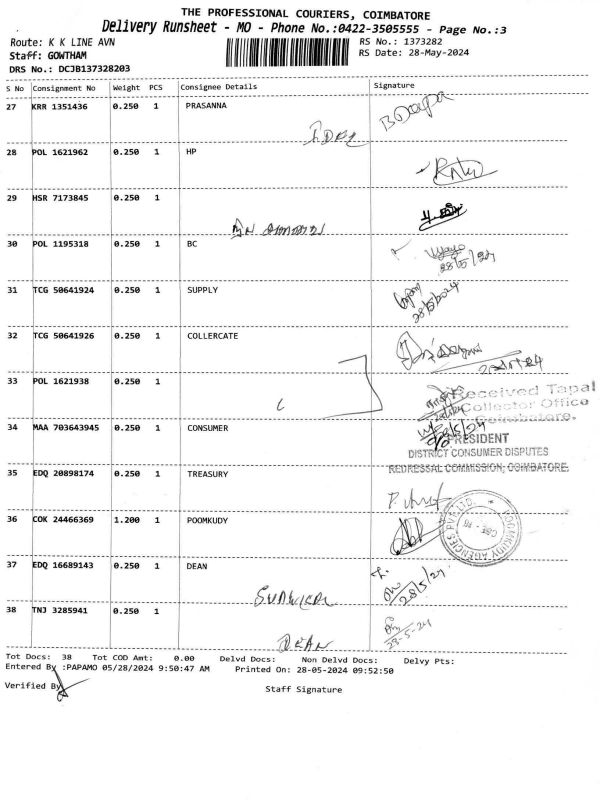 THE PROFESSIONAL COURIERS, COIMBATORE
Delivery Runsheet - MO - Phone No.:0422-3505555 - Page No.:3
Route: K K LINE AVN RS No.: 1373282
Staff: GOWTHAM RS Date: 28-May-2024
DRS No.: DCJB137328203
S No Consignment No Weight PCS Consignee Details Signature
27 KRR 1351436 0.250 1 PRASANNA
28 POL 1621962 0.250 1 HP
29 HSR 7173845 0.250 1
30 POL 1195318 0.250 1 BC
28/5/24
31 TCG 50641924 0.250 1 SUPPLY
28/5/2024
32 TCG 50641926 0.250 1 COLLERCATE
33 POL 1621938 0.250 1
Received Tapal
Collector Office
Coimbatore.
34 MAA 703643945 0.250 1 CONSUMER
PRESIDENT
DISTRICT CONSUMER DISPUTES
REDRESSAL COMMISSION, COIMBATORE.
35 EDQ 20898174 0.250 1 TREASURY
36 COK 24466369 1.200 1 POOMKUDY
POOMKUDY AGENCIES PVT. LTD.
37 EDQ 16689143 0.250 1 DEAN
28/5/24
38 TNJ 3285941 0.250 1
DEAN
28-5-24
Tot Docs: 38 Tot COD Amt: 0.00 Delvd Docs: Non Delvd Docs: Delvy Pts:
Entered By :PAPAMO 05/28/2024 9:50:47 AM Printed On: 28-05-2024 09:52:50
Verified By
Staff Signature